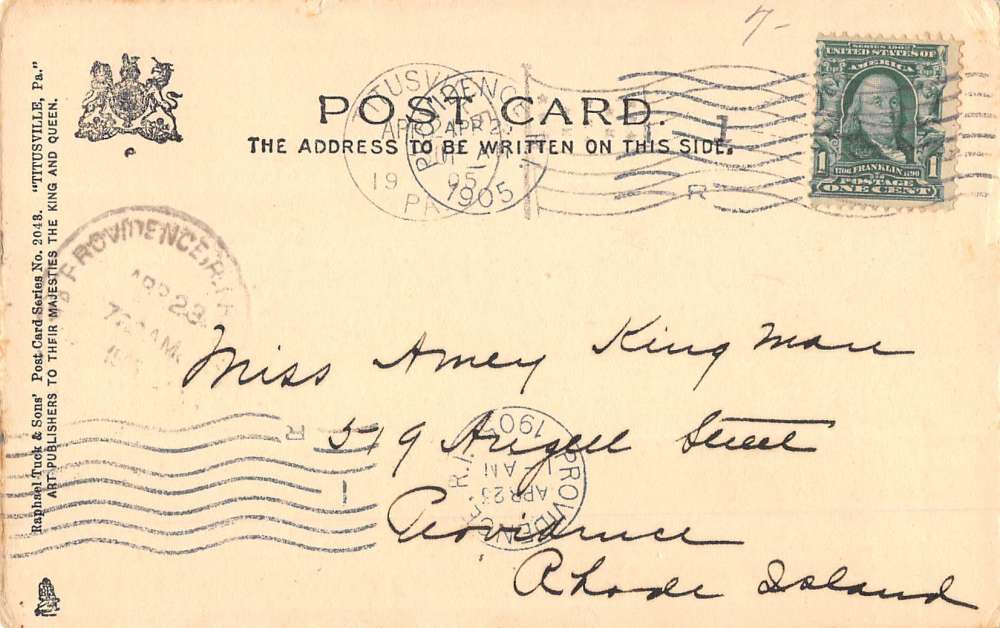 Raphael Tuck & Sons' Post Card Series No. 2043. "TITUSVILLE, Pa."
ART PUBLISHERS TO THEIR MAJESTIES THE KING AND QUEEN.
POST CARD.
THE ADDRESS TO BE WRITTEN ON THIS SIDE.
TITUSVILLE
19
PA
PROVIDENCE
APR 23
1905
R
1
SERIES 1902
UNITED STATES OF
AMERICA
1706 FRANKLIN 1790
POSTAGE
1 1
ONE CENT
PROVIDENCE, R.I.
APR 23
7 AM
Miss Amey King man
519 Angell Street
Providence
Rhode Island
PROVIDENCE R.I.
APR 23
AM
1905
R
1